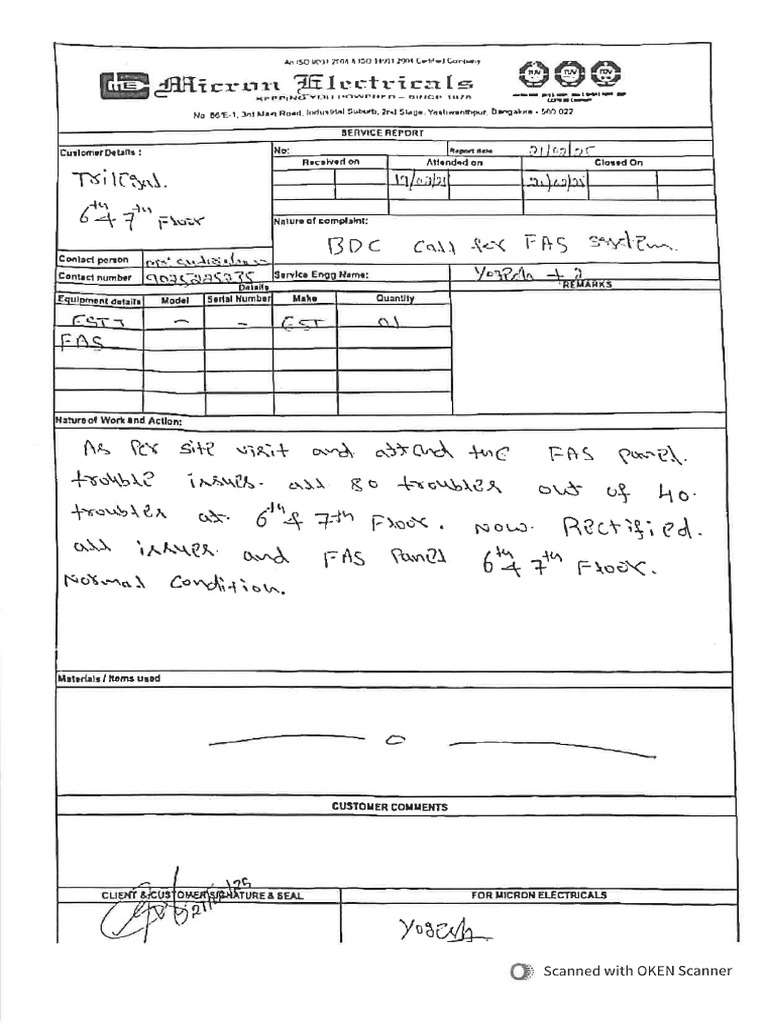 An ISO 9001 2008 & ISO 14001 2004 Certified Company
Micron Electricals
KEEPING YOU POWERED - SINCE 1978
No. 66/E-1, 3rd Main Road, Industrial Suburb, 2nd Stage, Yeshwanthpur, Bangalore - 560 022
TUV TUV TUV
SERVICE REPORT
Customer Details :
Trilegal.
6th & 7th Floor
No:
Report date
21/02/25
Received on
Attended on
Closed On
19/02/25
21/02/25
Nature of complaint:
BDC call for FAS system.
Contact person
Contact number
Service Engg Name:
Yogesh + 2
Details
REMARKS
Equipment details
Model
Serial Number
Make
Quantity
EST3
-
-
EST
01
FAS
Nature of Work and Action:
As per site visit and attend the FAS panel.
trouble issues. all 80 troubles out of 40.
troubles at 6th & 7th Floor. Now. Rectified.
all issues and FAS Panel 6th & 7th Floor.
Normal Condition.
Materials / Items used
CUSTOMER COMMENTS
CLIENT & CUSTOMER SIGNATURE & SEAL
FOR MICRON ELECTRICALS
Yogesh
Scanned with OKEN Scanner